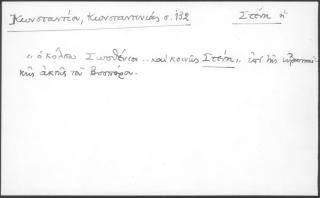 Κωνσταντίου, Κωνσταντινιάς σ. 192 Στένη ἡ
"ὁ κόλπος Σωσθένιον... καὶ κοινῶς Στένη" ἐπὶ τῆς εὐρωπαϊ-
κῆς ἀκτῆς τοῦ Βοσπόρου.